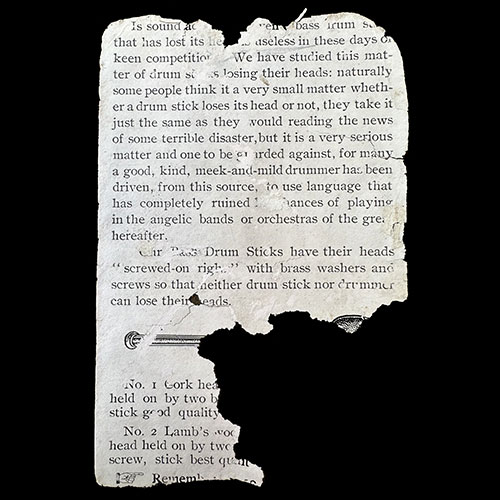 Is sound bass drum
that has lost its useless in these days of
keen competition We have studied this mat-
ter of drum losing their heads: naturally
some people think it a very small matter wheth-
er a drum stick loses its head or not, they take it
just the same as they would reading the news
of some terrible disaster, but it is a very serious
matter and one to be guarded against, for many
a good, kind, meek-and-mild drummer has been
driven, from this source, to use language that
has completely ruined chances of playing
in the angelic bands or orchestras of the
hereafter.
Bass Drum Sticks have their heads
"screwed-on right" with brass washers and
screws so that neither drum stick nor drummer
can lose their heads.
No. 1 Cork
held on by two
stick good quality
No. 2 Lamb's
head held on by two
screw, stick best